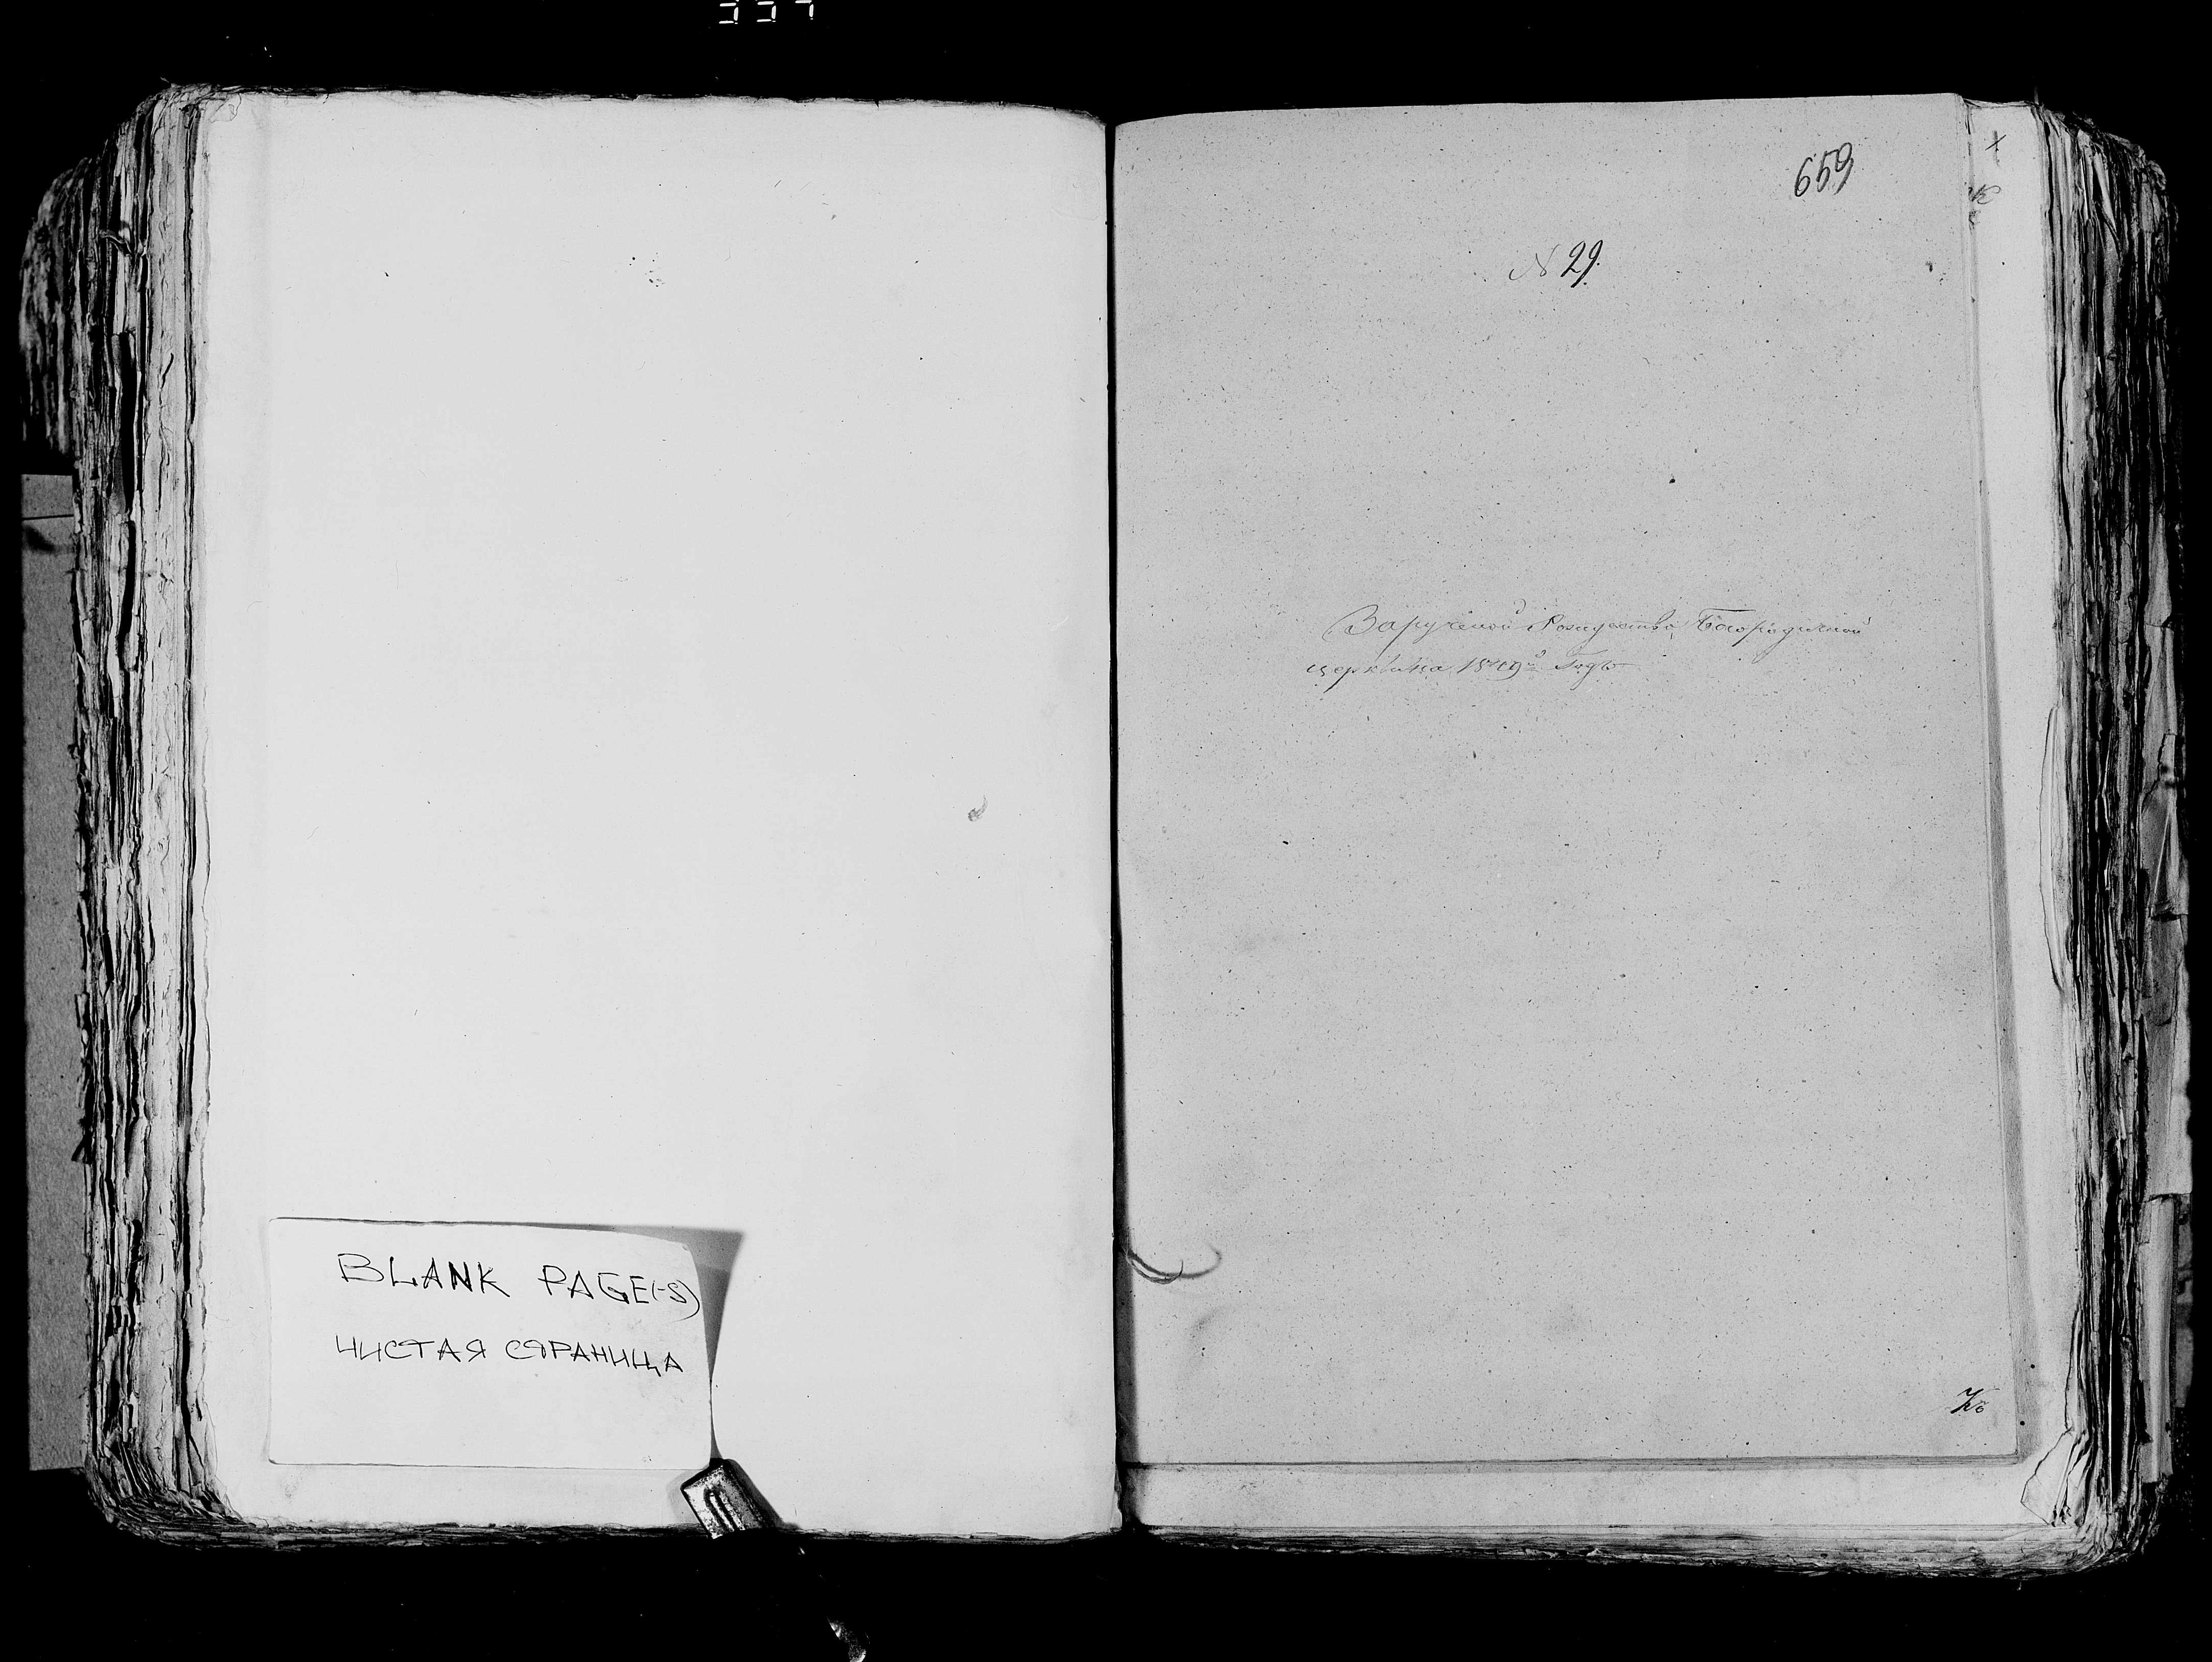 BLANK PAGE(-S)
ЧИСТАЯ СТРАНИЦА
659
N 29.
Заручейной Рождество Богородичной
церкви на 1849й Годъ